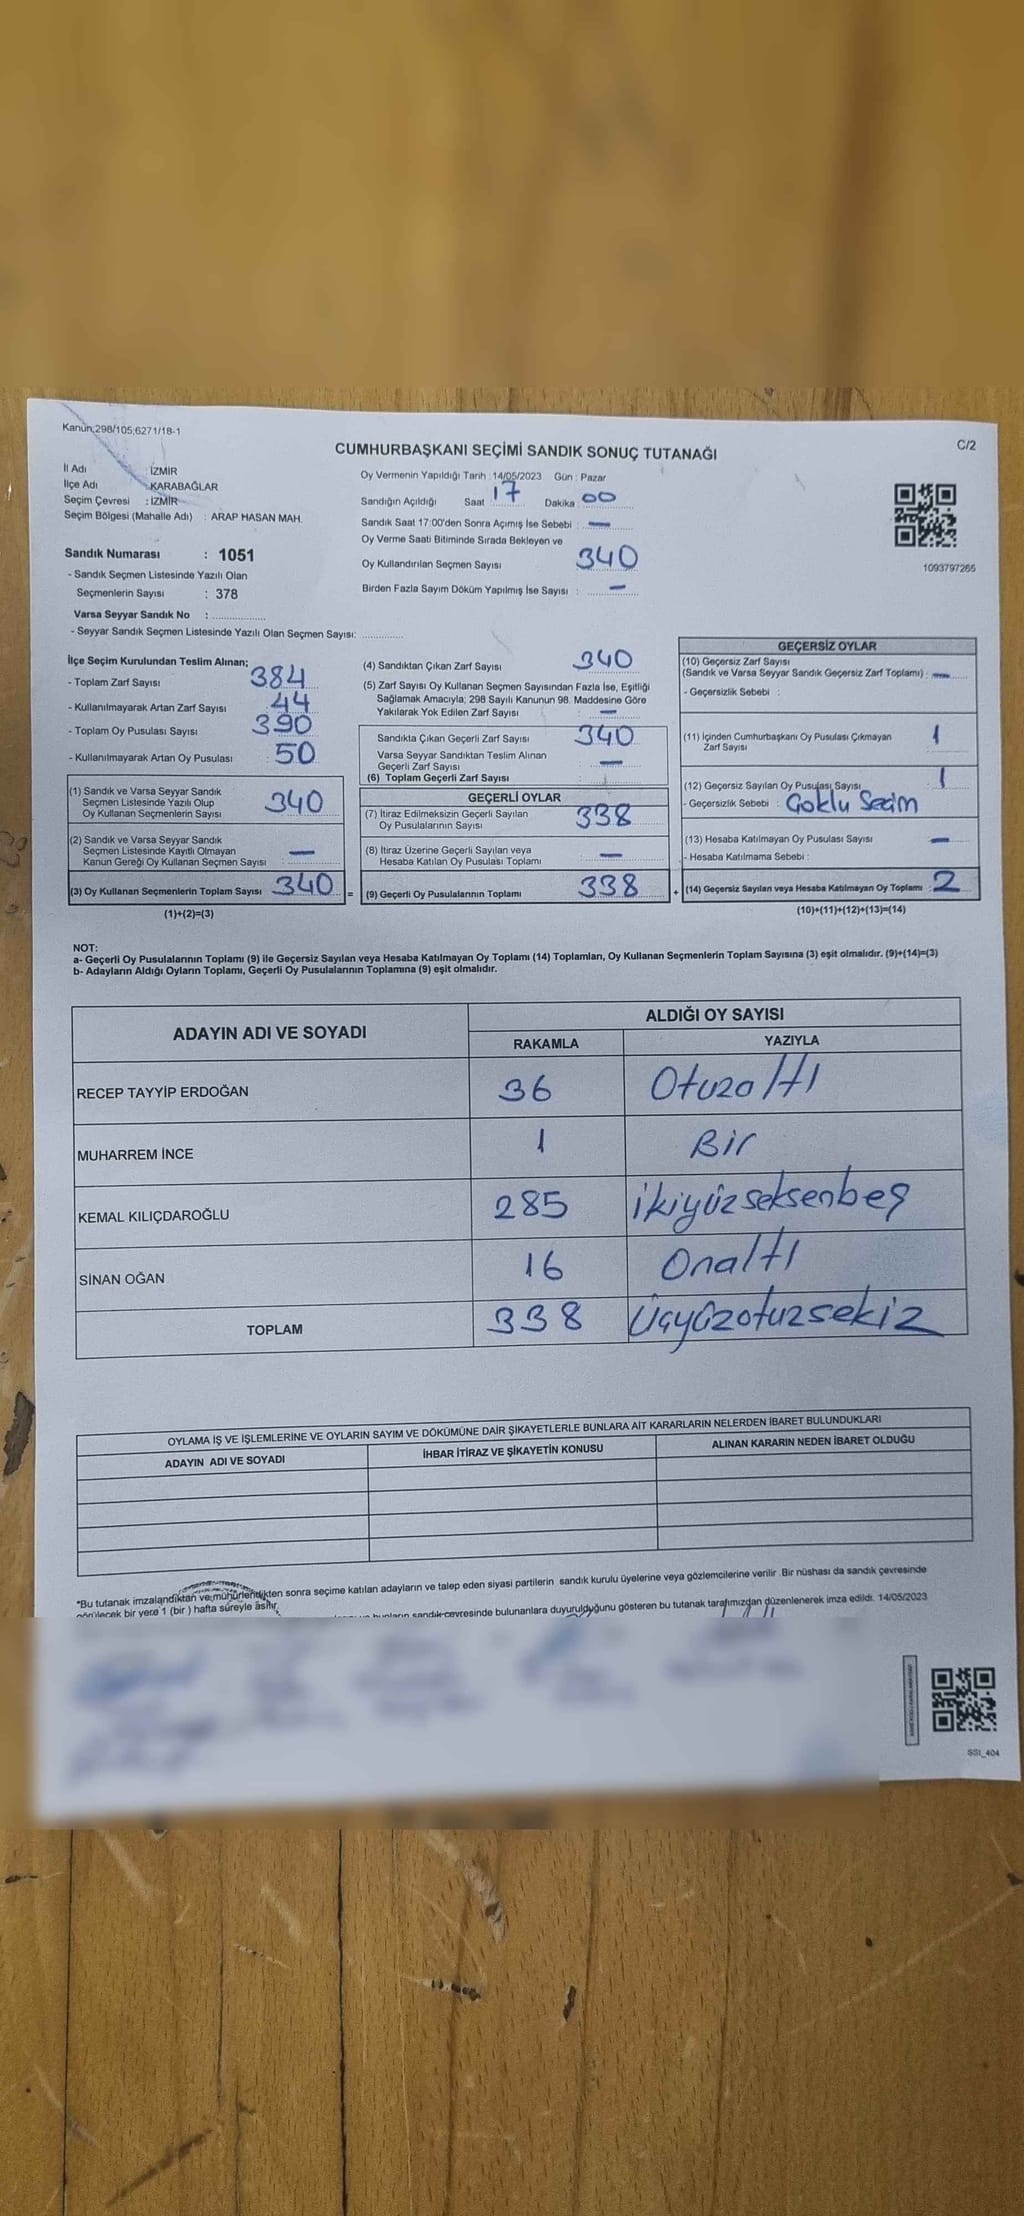 Kanun;298/105;6271/18-1
C/2
CUMHURBAŞKANI SEÇİMİ SANDIK SONUÇ TUTANAĞI
İl Adı : İZMİR
İlçe Adı : KARABAĞLAR
Seçim Çevresi : İZMİR
Seçim Bölgesi (Mahalle Adı) : ARAP HASAN MAH.
Sandık Numarası : 1051
- Sandık Seçmen Listesinde Yazılı Olan
Seçmenlerin Sayısı : 378
Varsa Seyyar Sandık No :
- Seyyar Sandık Seçmen Listesinde Yazılı Olan Seçmen Sayısı:
Oy Vermenin Yapıldığı Tarih : 14/05/2023 Gün : Pazar
Sandığın Açıldığı Saat 17 Dakika : 00
Sandık Saat 17:00'den Sonra Açımış İse Sebebi : —
Oy Verme Saati Bitiminde Sırada Bekleyen ve
Oy Kullandırılan Seçmen Sayısı 340
Birden Fazla Sayım Döküm Yapılmış İse Sayısı : —
1093797265
İlçe Seçim Kurulundan Teslim Alınan;
- Toplam Zarf Sayısı 384
- Kullanılmayarak Artan Zarf Sayısı : 44
- Toplam Oy Pusulası Sayısı 390
- Kullanılmayarak Artan Oy Pusulası : 50
(1) Sandık ve Varsa Seyyar Sandık
Seçmen Listesinde Yazılı Olup
Oy Kullanan Seçmenlerin Sayısı 340
(2) Sandık ve Varsa Seyyar Sandık
Seçmen Listesinde Kayıtlı Olmayan
Kanun Gereği Oy Kullanan Seçmen Sayısı : —
(3) Oy Kullanan Seçmenlerin Toplam Sayısı 340 =
(1)+(2)=(3)
(4) Sandıktan Çıkan Zarf Sayısı 340
(5) Zarf Sayısı Oy Kullanan Seçmen Sayısından Fazla İse, Eşitliği
Sağlamak Amacıyla; 298 Sayılı Kanunun 98. Maddesine Göre
Yakılarak Yok Edilen Zarf Sayısı —
Sandıkta Çıkan Geçerli Zarf Sayısı 340
Varsa Seyyar Sandıktan Teslim Alınan
Geçerli Zarf Sayısı —
(6) Toplam Geçerli Zarf Sayısı
GEÇERLİ OYLAR
(7) İtiraz Edilmeksizin Geçerli Sayılan
Oy Pusulalarının Sayısı 338
(8) İtiraz Üzerine Geçerli Sayılan veya
Hesaba Katılan Oy Pusulası Toplamı —
(9) Geçerli Oy Pusulalarının Toplamı 338 +
GEÇERSİZ OYLAR
(10) Geçersiz Zarf Sayısı
(Sandık ve Varsa Seyyar Sandık Geçersiz Zarf Toplamı) : —
- Geçersizlik Sebebi :
(11) İçinden Cumhurbaşkanı Oy Pusulası Çıkmayan
Zarf Sayısı 1
(12) Geçersiz Sayılan Oy Pusulası Sayısı 1
- Geçersizlik Sebebi : Çoklu Seçim
(13) Hesaba Katılmayan Oy Pusulası Sayısı —
- Hesaba Katılmama Sebebi :
(14) Geçersiz Sayılan veya Hesaba Katılmayan Oy Toplamı : 2
(10)+(11)+(12)+(13)=(14)
NOT:
a- Geçerli Oy Pusulalarının Toplamı (9) ile Geçersiz Sayılan veya Hesaba Katılmayan Oy Toplamı (14) Toplamları, Oy Kullanan Seçmenlerin Toplam Sayısına (3) eşit olmalıdır. (9)+(14)=(3)
b- Adayların Aldığı Oyların Toplamı, Geçerli Oy Pusulalarının Toplamına (9) eşit olmalıdır.
ADAYIN ADI VE SOYADI
ALDIĞI OY SAYISI
RAKAMLA YAZIYLA
RECEP TAYYİP ERDOĞAN 36 Otuzaltı
MUHARREM İNCE 1 Bir
KEMAL KILIÇDAROĞLU 285 ikiyüzseksenbeş
SİNAN OĞAN 16 Onaltı
TOPLAM 338 Üçyüzotuzsekiz
OYLAMA İŞ VE İŞLEMLERİNE VE OYLARIN SAYIM VE DÖKÜMÜNE DAİR ŞİKAYETLERLE BUNLARA AİT KARARLARIN NELERDEN İBARET BULUNDUKLARI
ADAYIN ADI VE SOYADI İHBAR İTİRAZ VE ŞİKAYETİN KONUSU ALINAN KARARIN NEDEN İBARET OLDUĞU
*Bu tutanak imzalandıktan ve mühürlendikten sonra seçime katılan adayların ve talep eden siyasi partilerin sandık kurulu üyelerine veya gözlemcilerine verilir. Bir nüshası da sandık çevresinde
görülecek bir yere 1 (bir ) hafta süreyle asılır.
bunların sandık çevresinde bulunanlara duyurulduğunu gösteren bu tutanak tarafımızdan düzenlenerek imza edildi. 14/05/2023
SSI_404